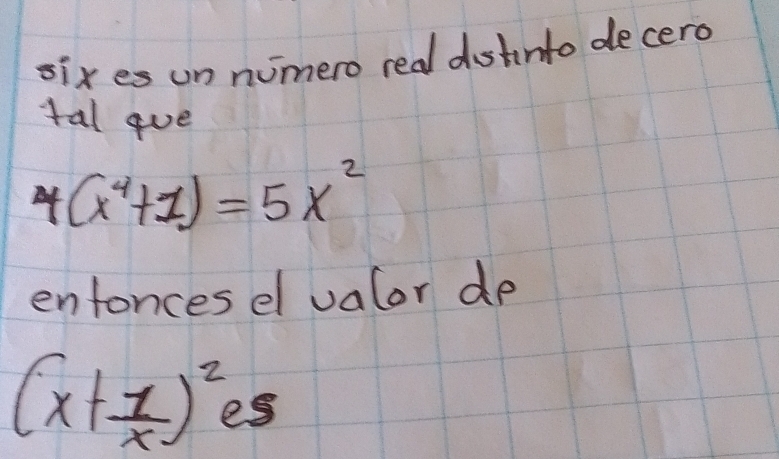 si x es un número real distinto de cero
tal que
4(x⁴+1)=5x²
entonces el valor de
(x+1/x)² es